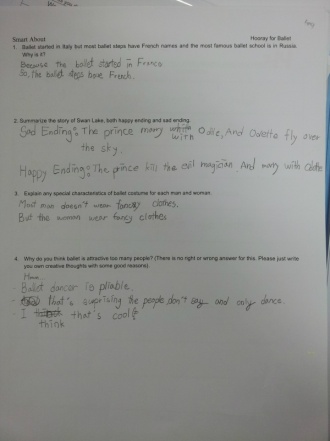 Amy
Smart About
Hooray for Ballet
1. Ballet started in Italy but most ballet steps have French names and the most famous ballet school is in Russia.
Why is it?
Because the ballet started in France
So, the ballet steps have French.
2. Summarize the story of Swan Lake, both happy ending and sad ending.
Sad Ending: The prince marry with Odile, And Odette fly over
the sky.
Happy Ending: The prince kill the evil magician And marry with Odette
3. Explain any special characteristics of ballet costume for each man and woman.
Most man doesn't wear fancy clothes.
But the woman wear fancy clothes
4. Why do you think ballet is attractive too many people? (There is no right or wrong answer for this. Please just write
you own creative thoughts with some good reasons).
Hmm...
- Ballet dancer is pliable.
- that's suprising the people don't say and only dance.
- I think that's cool